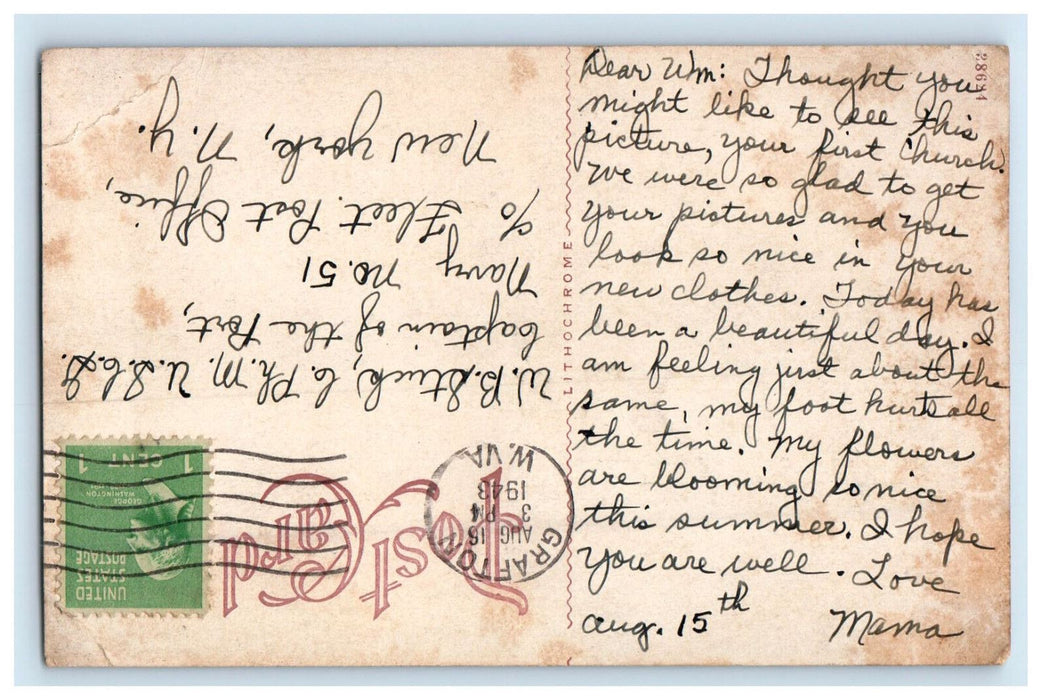 Dear Wm: Thought you
might like to see this
picture, your first church.
We were so glad to get
your pictures and you
look so nice in your
new clothes. Today has
been a beautiful day. I
am feeling just about the
same, my foot hurts all
the time. My flowers
are blooming so nice
this summer. I hope
you are well. Love
Aug. 15th Mama
LITHOCHROME
Post Card
GRAFTON
AUG 16
3 PM
1943
W.VA.
UNITED
STATES
POSTAGE
GEORGE
WASHINGTON
1 CENT 1
W. B. Stuck, C. Ph. M. U.S.C.G.
Captain of the Port,
Navy No. 51
c/o Fleet Post Office,
New York, N.Y.